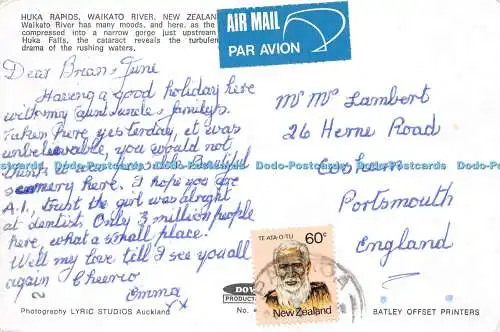 HUKA RAPIDS, WAIKATO RIVER, NEW ZEALAN
Waikato River has many moods, and here, as the
compressed into a narrow gorge just upstream
Huka Falls, the cataract reveals the turbulen
drama of the rushing waters.
AIR MAIL
PAR AVION
Dear Brian & June
Having a good holiday here
with my Aunt uncle & family's.
Taken here yesterday, it was
unbelievable, you would not
think it was
scennery here. I hope you are
A.1, trust the girl was alright
at dentist. Only 3 million people
here, what a small place!
Well my love till I see you all
again Cheerio
Emma
xx
Mr Mrs Lambert
26 Herne Road
Cosham
Portsmouth
England
Dodo-Postcards Dodo-Postcards Dodo-Postcards Dodo-Postcards Dodo-Postcards
TE ATA-O-TU 60c
New Zealand
Photography LYRIC STUDIOS Auckland
DOW
PRODUCT
No.
BATLEY OFFSET PRINTERS